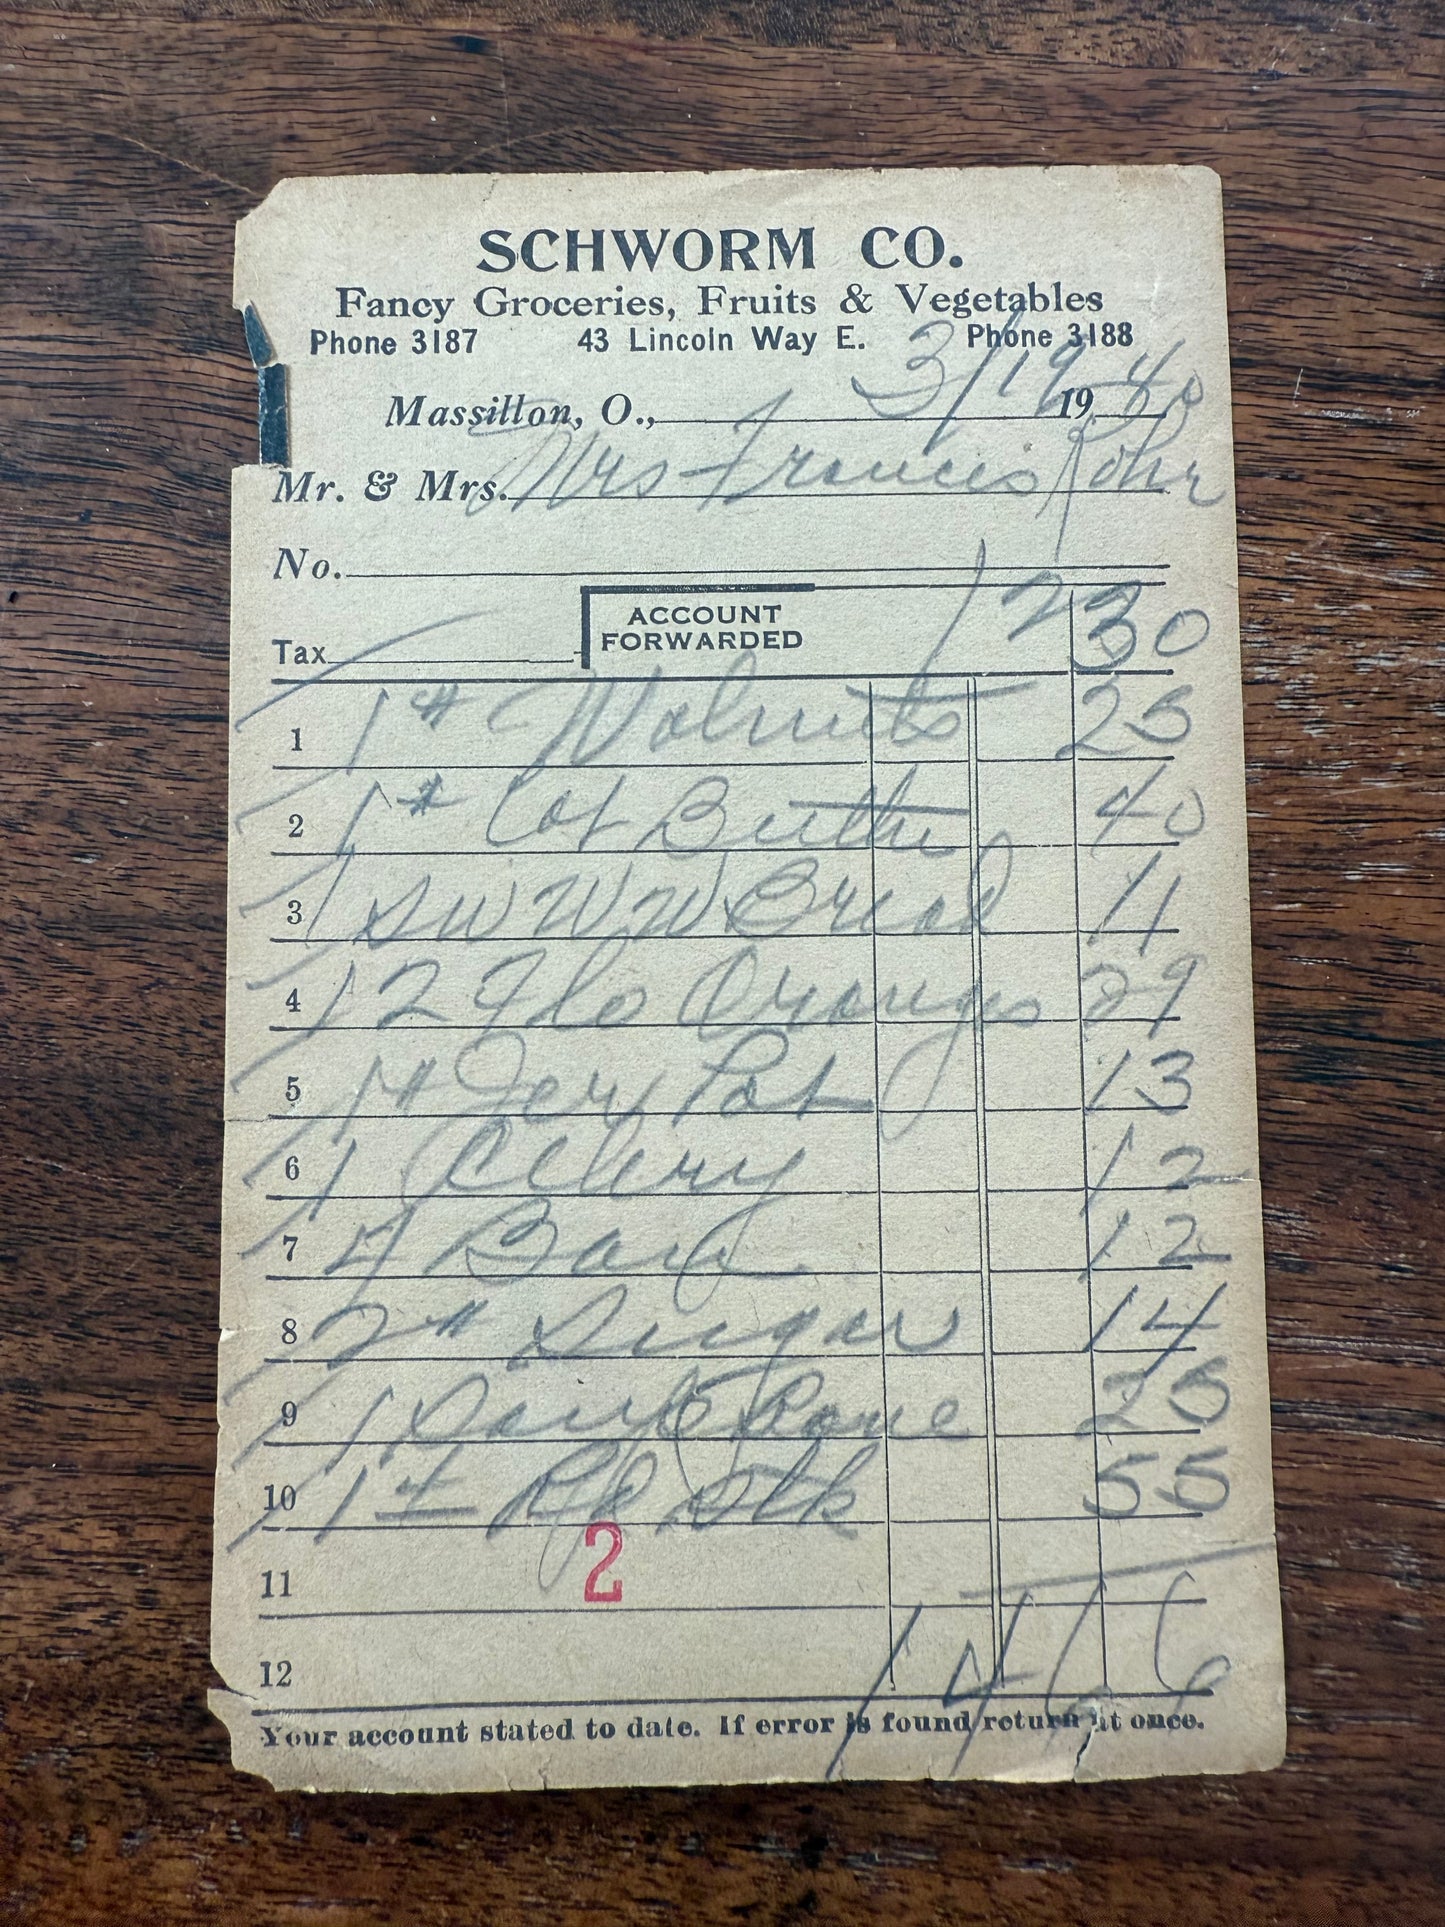 SCHWORM CO.
Fancy Groceries, Fruits & Vegetables
Phone 3187 43 Lincoln Way E. Phone 3188
Massillon, O., 3/19 1940
Mr. & Mrs. Mrs Francis Rohr
No.
Tax ACCOUNT FORWARDED 12 30
1 1 # Walnuts 25
2 1 # Cot Butter 40
3 1 WW Bread 11
4 12 Flo Oranges 29
5 1 # Jery Pot 13
6 1 Celery 12
7 12
8 2 # Sugar 14
9 1 25
10 1 55
2
11
12 14 66
Your account stated to date. If error is found return at once.